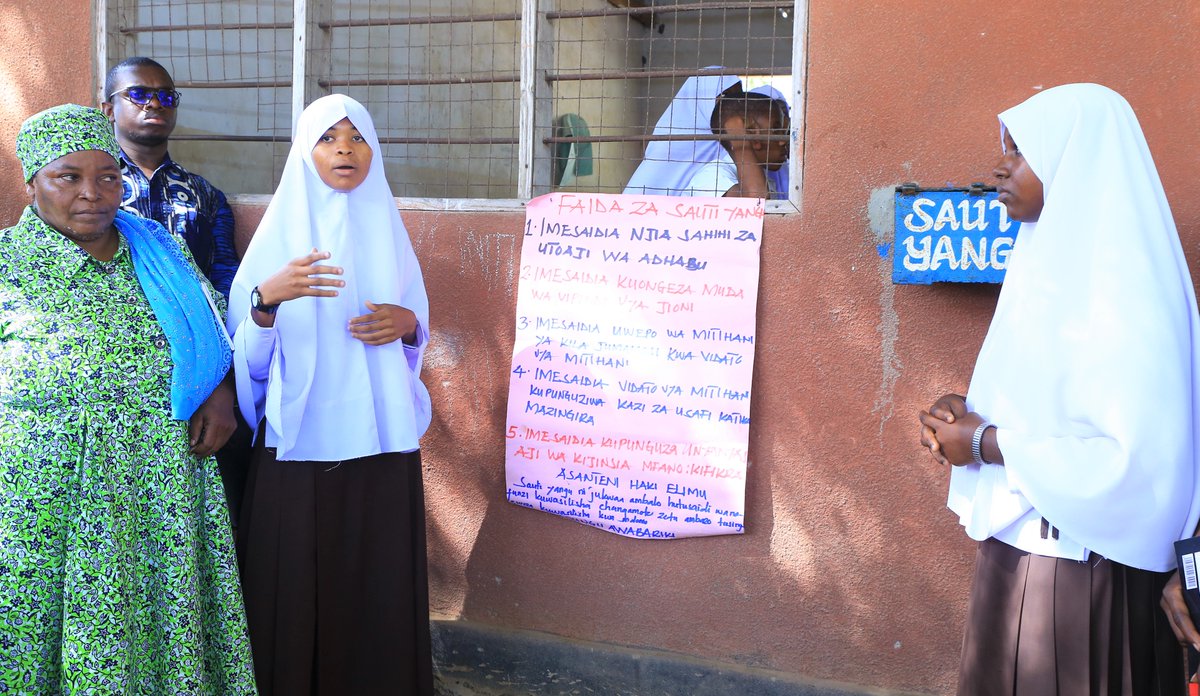 FAIDA ZA SAUTI YANG
1. IMESAIDIA NJIA SAHIHI ZA
UTOAJI WA ADHABU
2. IMESAIDIA KUONGEZA MUDA
WA VYA JIONI
3. IMESAIDIA UWEPO WA MITIHANI
YA KILA KWA VIDATO
VYA MITIHANI
4. IMESAIDIA VIDATO VYA MITIHANI
KUPUNGUZIWA KAZI ZA USAFI KATIKA
MAZINGIRA
5. IMESAIDIA KUPUNGUZA
AJI WA KIJINSIA MFANO: KIFIKRA
ASANTENI HAKI ELIMU
Sauti yangu ni jukwaa ambalo hutusaidi wana-
funzi kuwasilisha changamoto zetu ambazo
AWABARIKI
SAUTI
YANG